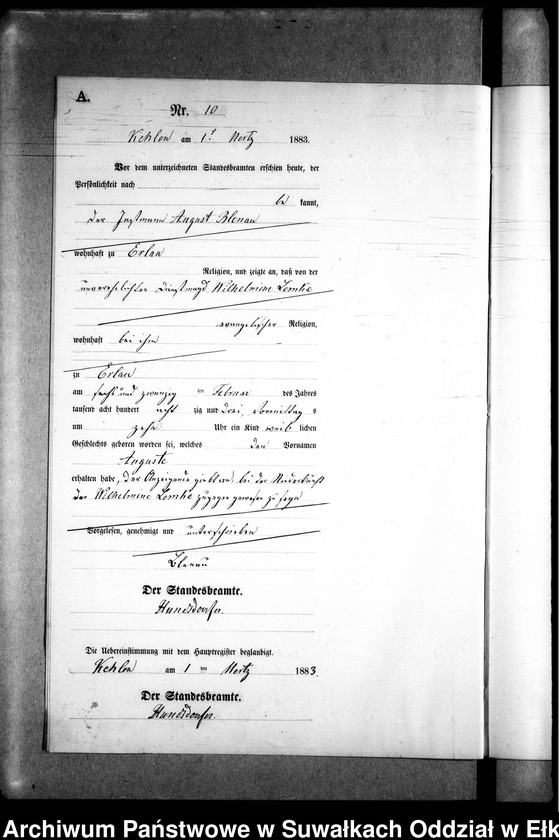 A.
Nr. 10
Kehlen am 1t März 1883.
Vor dem unterzeichneten Standesbeamten erschien heute, der
Persönlichkeit nach
be kannt,
der Instmann August Blenau
wohnhaft zu Erlau
Religion, und zeigte an, daß von der
unverehelichten Dienstmagd Wilhelmine Lemke
evangelischer Religion,
wohnhaft bei ihm
zu Erlau
am sechs und zwanzig ten Februar des Jahres
tausend acht hundert acht zig und drei, Vormittag s
um zehn Uhr ein Kind weib lichen
Geschlechts geboren worden sei, welches den Vornamen
Auguste
erhalten habe, der Anzeigende giebt an, bei der Niederkunft
der Wilhelmine Lemke zugegen gewesen zu sein
Vorgelesen, genehmigt und unterschrieben
Blenau
Der Standesbeamte.
Hundsdorfer.
Die Uebereinstimmung mit dem Hauptregister beglaubigt.
Kehlen am 1 ten März 1883.
Der Standesbeamte.
Hundsdorfer.
Archiwum Państwowe w Suwałkach Oddział w Ełk